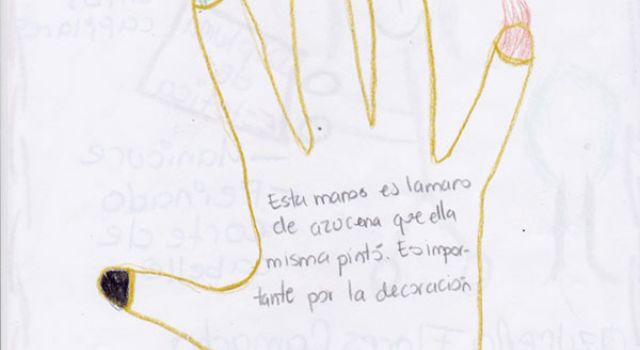 Esta manos es lamano
de azucena que ella
misma pintó. Es impor-
tante por la decoración